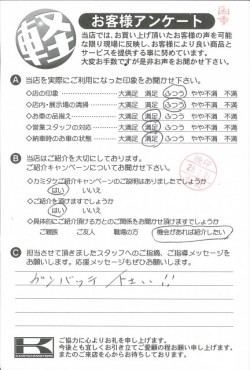 軽
お客様アンケート
当店では、お買い上げ頂いたお客様の声を可能
な限り現場に反映し、お客様により良い商品と
サービスを提供する事に努めています。
大変お手数ですが是非お声をお聞かせ下さい。
A 当店を実際にご利用になった印象をお聞かせ下さい。
◇店の印象 大満足 満足 ふつう やや不満 不満
◇店内・展示場の清掃 大満足 満足 ふつう やや不満 不満
◇お車の品揃え 大満足 満足 ふつう やや不満 不満
◇営業スタッフの対応 大満足 満足 ふつう やや不満 不満
◇納車時のお車の状態 大満足 満足 ふつう やや不満 不満
B 当店はご紹介を大切にしております。
ご紹介キャンペーンについてお聞かせ下さい。
◇カミタケご紹介キャンペーンのご説明はありましたでしょうか
はい いいえ
◇ご紹介を頂けますでしょうか
はい いいえ
◇具体的にご紹介頂ける方とのご関係をお聞かせ頂けますでしょうか
ご親族 ご友人 職場の方 機会があれば紹介したい
C 担当させて頂きましたスタッフへのご指摘、ご指導メッセージを
お願いします。応援メッセージもぜひお願いします。
ガンバッテ下さい!!
K
ご協力に心よりお礼を申し上げます。
今後とも宜しくお引き立てご愛顧の程お願い申し上げます。
またのご来店を心からお待ちしております。